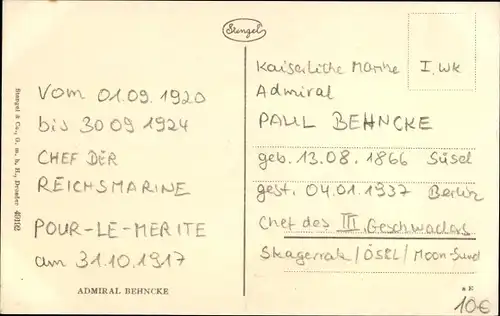 Stengel
Vom 01.09.1920
bis 30 09 1924
CHEF DER
REICHSMARINE
POUR-LE-MERITE
am 31.10.1917
ADMIRAL BEHNCKE
Stengel & Co., G. m. b. H., Dresden 49192
Kaiserliche Marine
I. WK
Admiral
PAUL BEHNCKE
geb. 13.08.1866 Süsel
gest. 04.01.1937 Berlin
Chef des III. Geschwaders
Skagerrak / ÖSEL / Moon-Sund
* E
10€